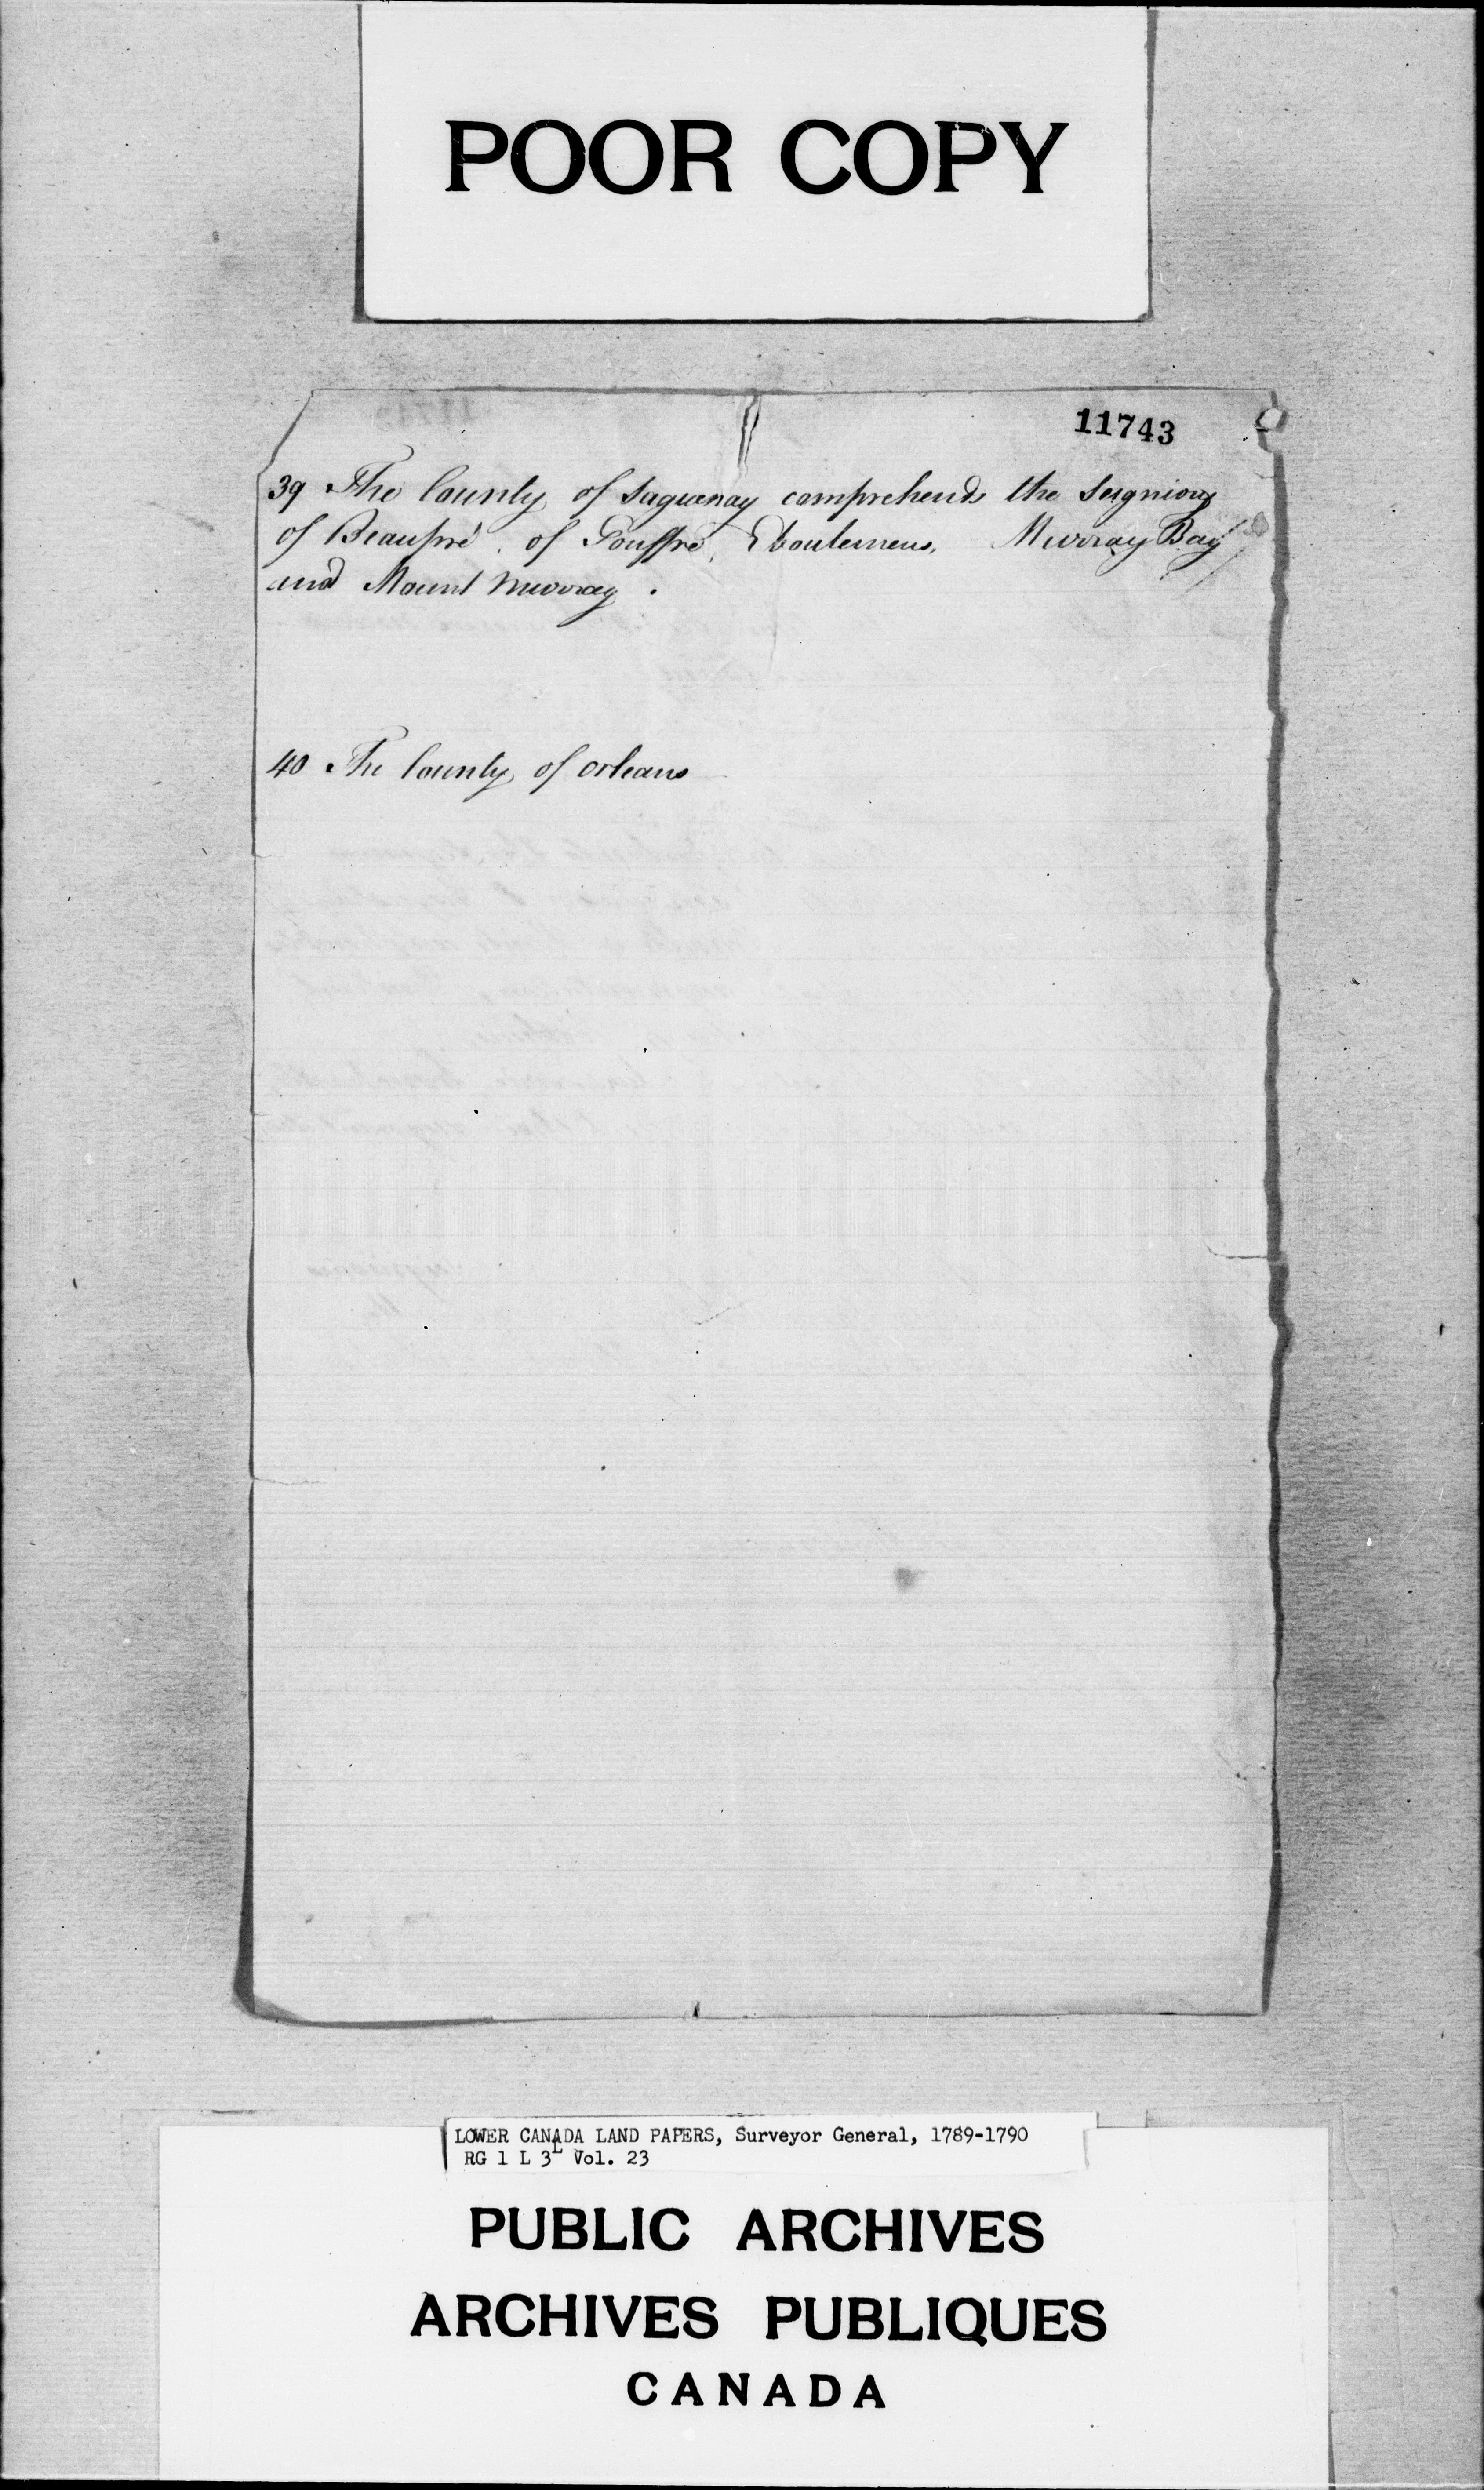 POOR COPY
11743
39 The County of Saguenay comprehends the Seigniory
of Beaupré. of Gouffre, Eboulemens, Murray Bay
and Mount Murray.
40 The County of Orleans
LOWER CANADA LAND PAPERS, Surveyor General, 1789-1790
RG 1 L 3L Vol. 23
PUBLIC ARCHIVES
ARCHIVES PUBLIQUES
CANADA